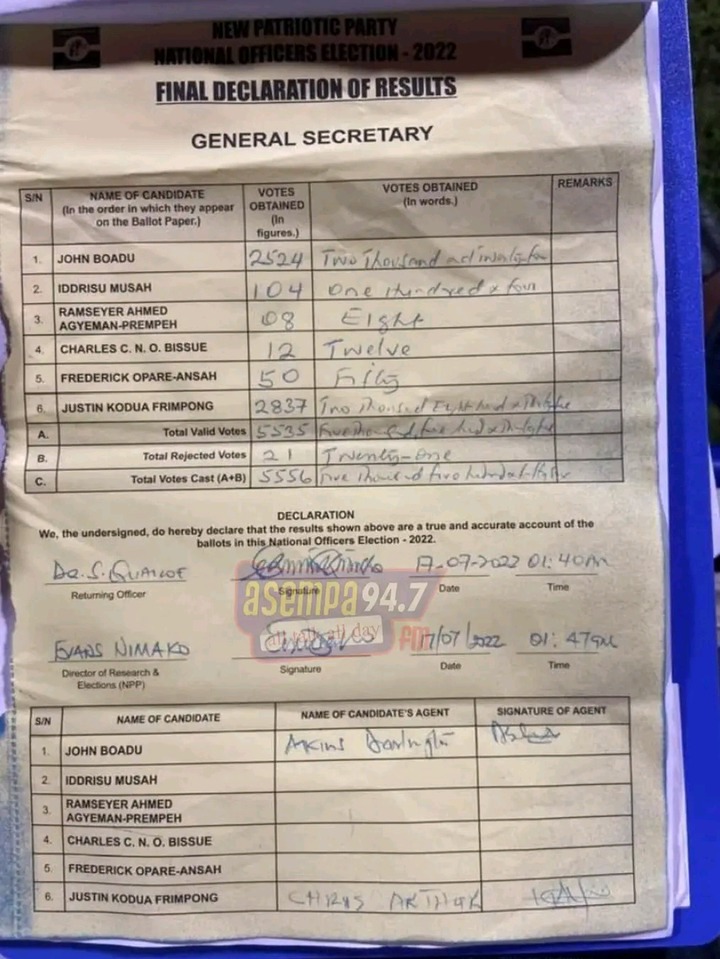 NEW PATRIOTIC PARTY
NATIONAL OFFICERS ELECTION - 2022
FINAL DECLARATION OF RESULTS
GENERAL SECRETARY
S/N NAME OF CANDIDATE (In the order in which they appear on the Ballot Paper.) VOTES OBTAINED (In figures.) VOTES OBTAINED (In words.) REMARKS
1. JOHN BOADU 2524 Two Thousand
2. IDDRISU MUSAH 104 One Hundred & four
3. RAMSEYER AHMED AGYEMAN-PREMPEH 08 Eight
4. CHARLES C. N. O. BISSUE 12 Twelve
5. FREDERICK OPARE-ANSAH 50 Fifty
6. JUSTIN KODUA FRIMPONG 2837 Two Thousand Eight
A. Total Valid Votes 5535 Five Thousand, five
B. Total Rejected Votes 21 Twenty-One
C. Total Votes Cast (A+B) 5556 Five Thousand five
DECLARATION
We, the undersigned, do hereby declare that the results shown above are a true and accurate account of the
ballots in this National Officers Election - 2022.
17-07-2022 01:40AM
Returning Officer Signature Date Time
asempa 94.7 fm
all talk all day
EVANS NIMAKO 17/07/2022 01:47AM
Director of Research & Signature Date Time
Elections (NPP)
S/N NAME OF CANDIDATE NAME OF CANDIDATE'S AGENT SIGNATURE OF AGENT
1. JOHN BOADU
2. IDDRISU MUSAH
3. RAMSEYER AHMED AGYEMAN-PREMPEH
4. CHARLES C. N. O. BISSUE
5. FREDERICK OPARE-ANSAH
6. JUSTIN KODUA FRIMPONG